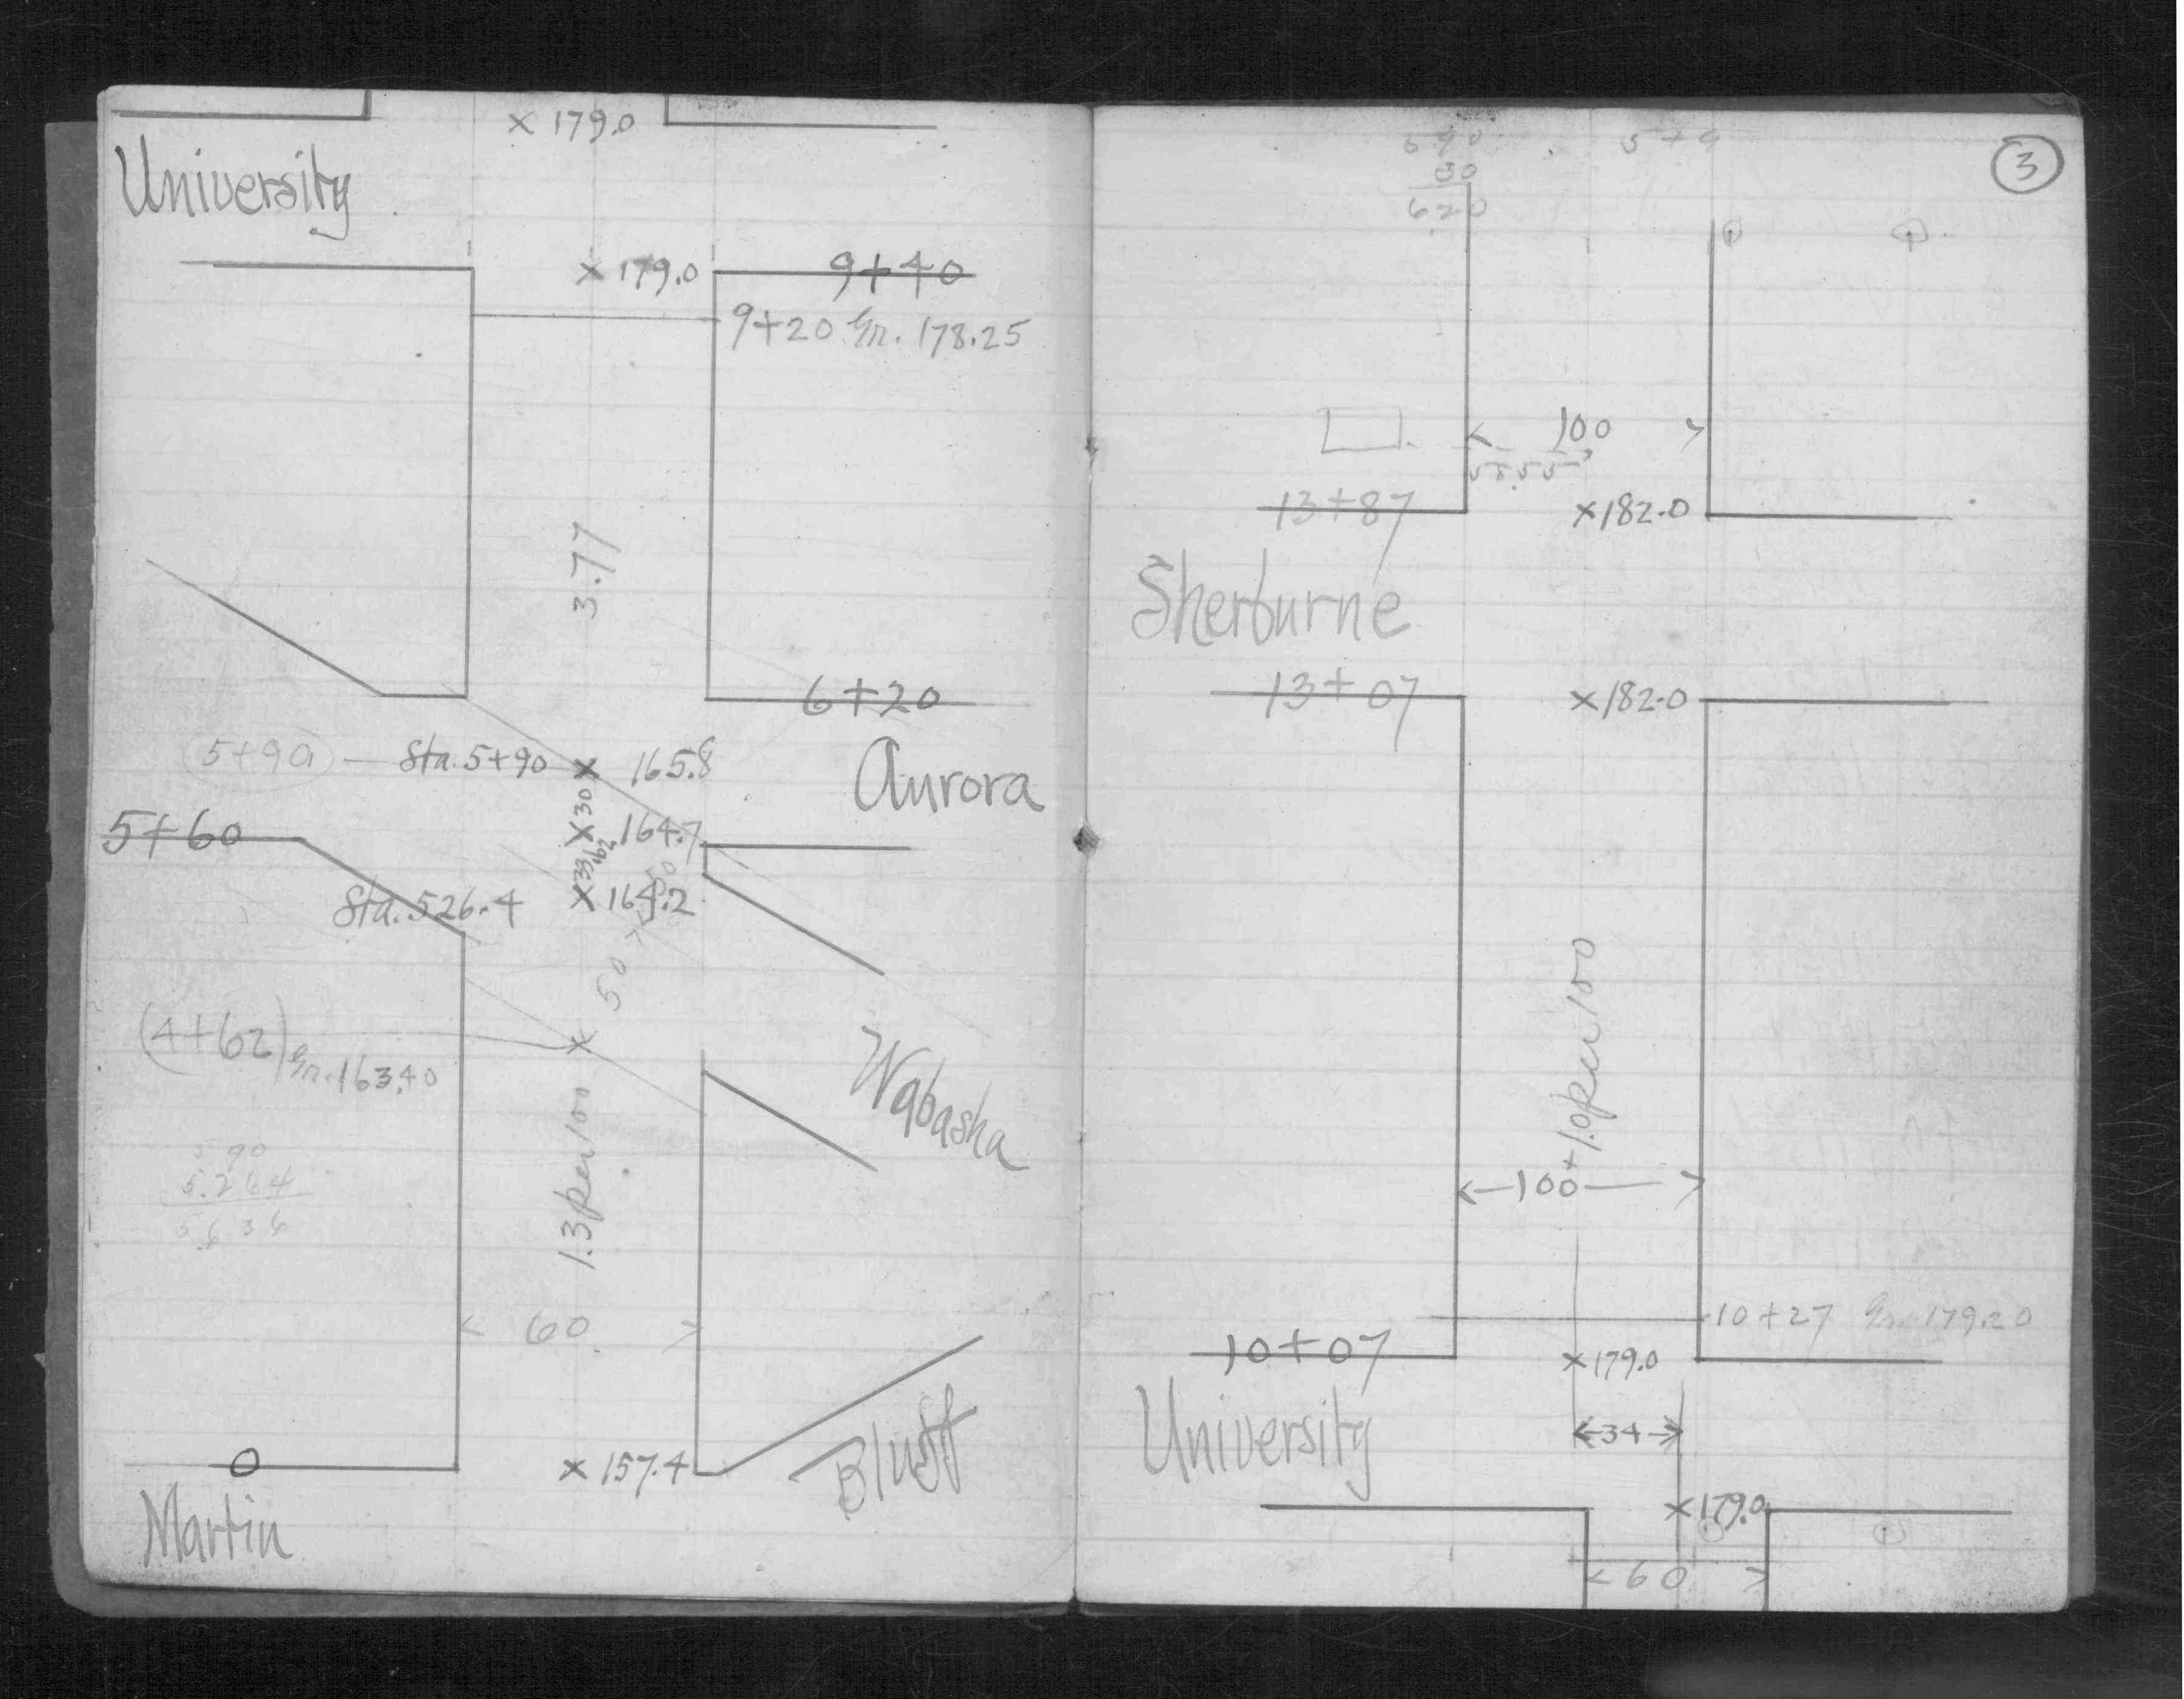 × 179.0
University
× 179.0
9+40
9+20 Gr. 178.25
3.77
6+20
5+90
Sta. 5+90
× 165.8
Aurora
30
5+60
× 164.7
Sta. 526.4
× 164.2
50
(4+62) Gr. 163.40
×
Wabasha
1.3 per 100
90
5.264
5636
60
0
× 157.4
Bluff
Martin
3
590
30
620
5+9
100
58.55
13+87
× 182.0
Sherburne
13+07
× 182.0
+1.0 per 100
100
10+27 Gr. 179.20
10+07
× 179.0
University
34
× 179.0
60